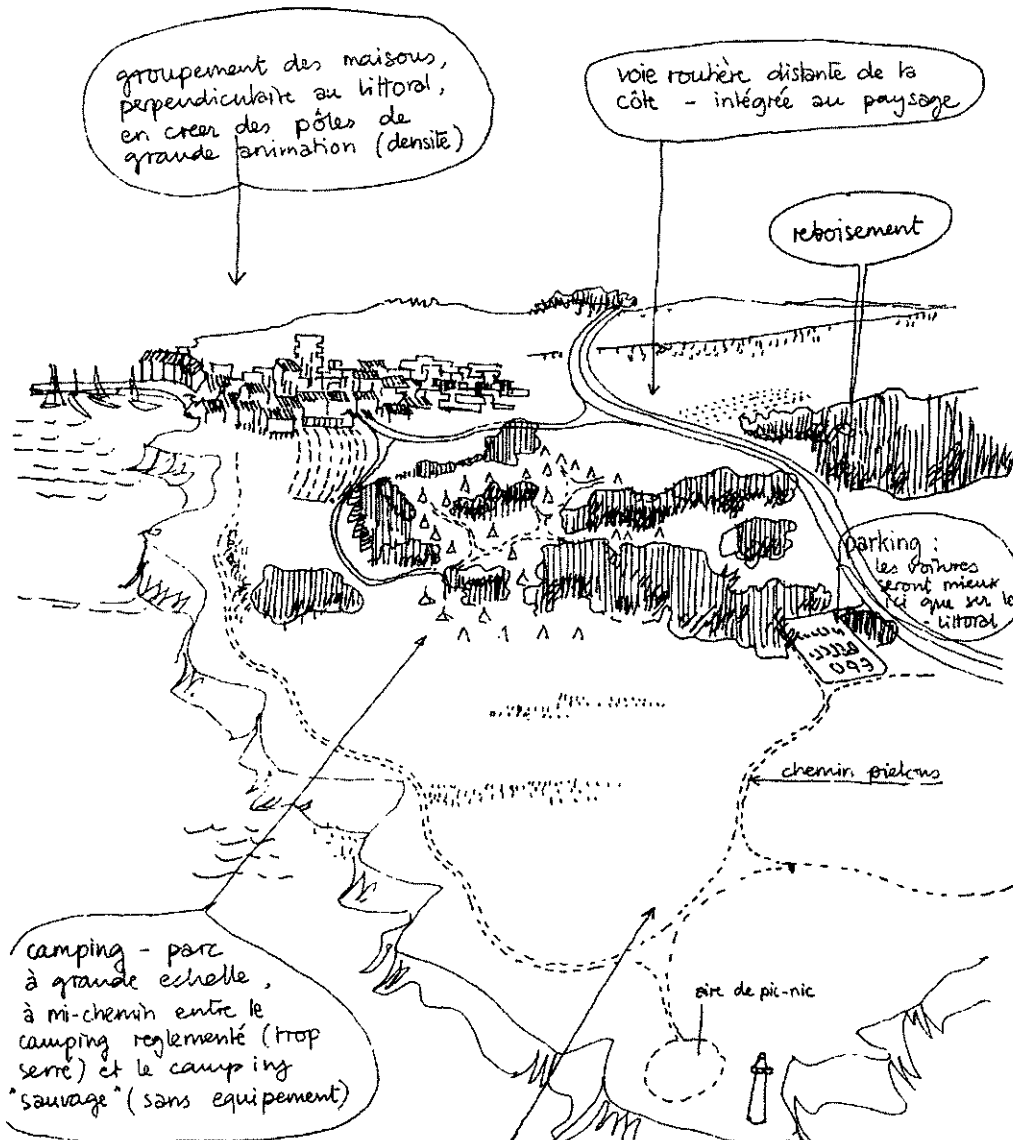 groupement des maisons,
perpendiculaire au littoral,
en creer des pôles de
grande animation (densite)
voie routière distante de la
côte - intégrée au paysage
reboisement
parking :
les voitures
seront mieux
ici que sur le
littoral
chemin pietons
camping - parc
à grande echelle,
à mi-chemin entre le
camping reglementé (trop
serré) et le camping
"sauvage" (sans equipement)
aire de pic-nic